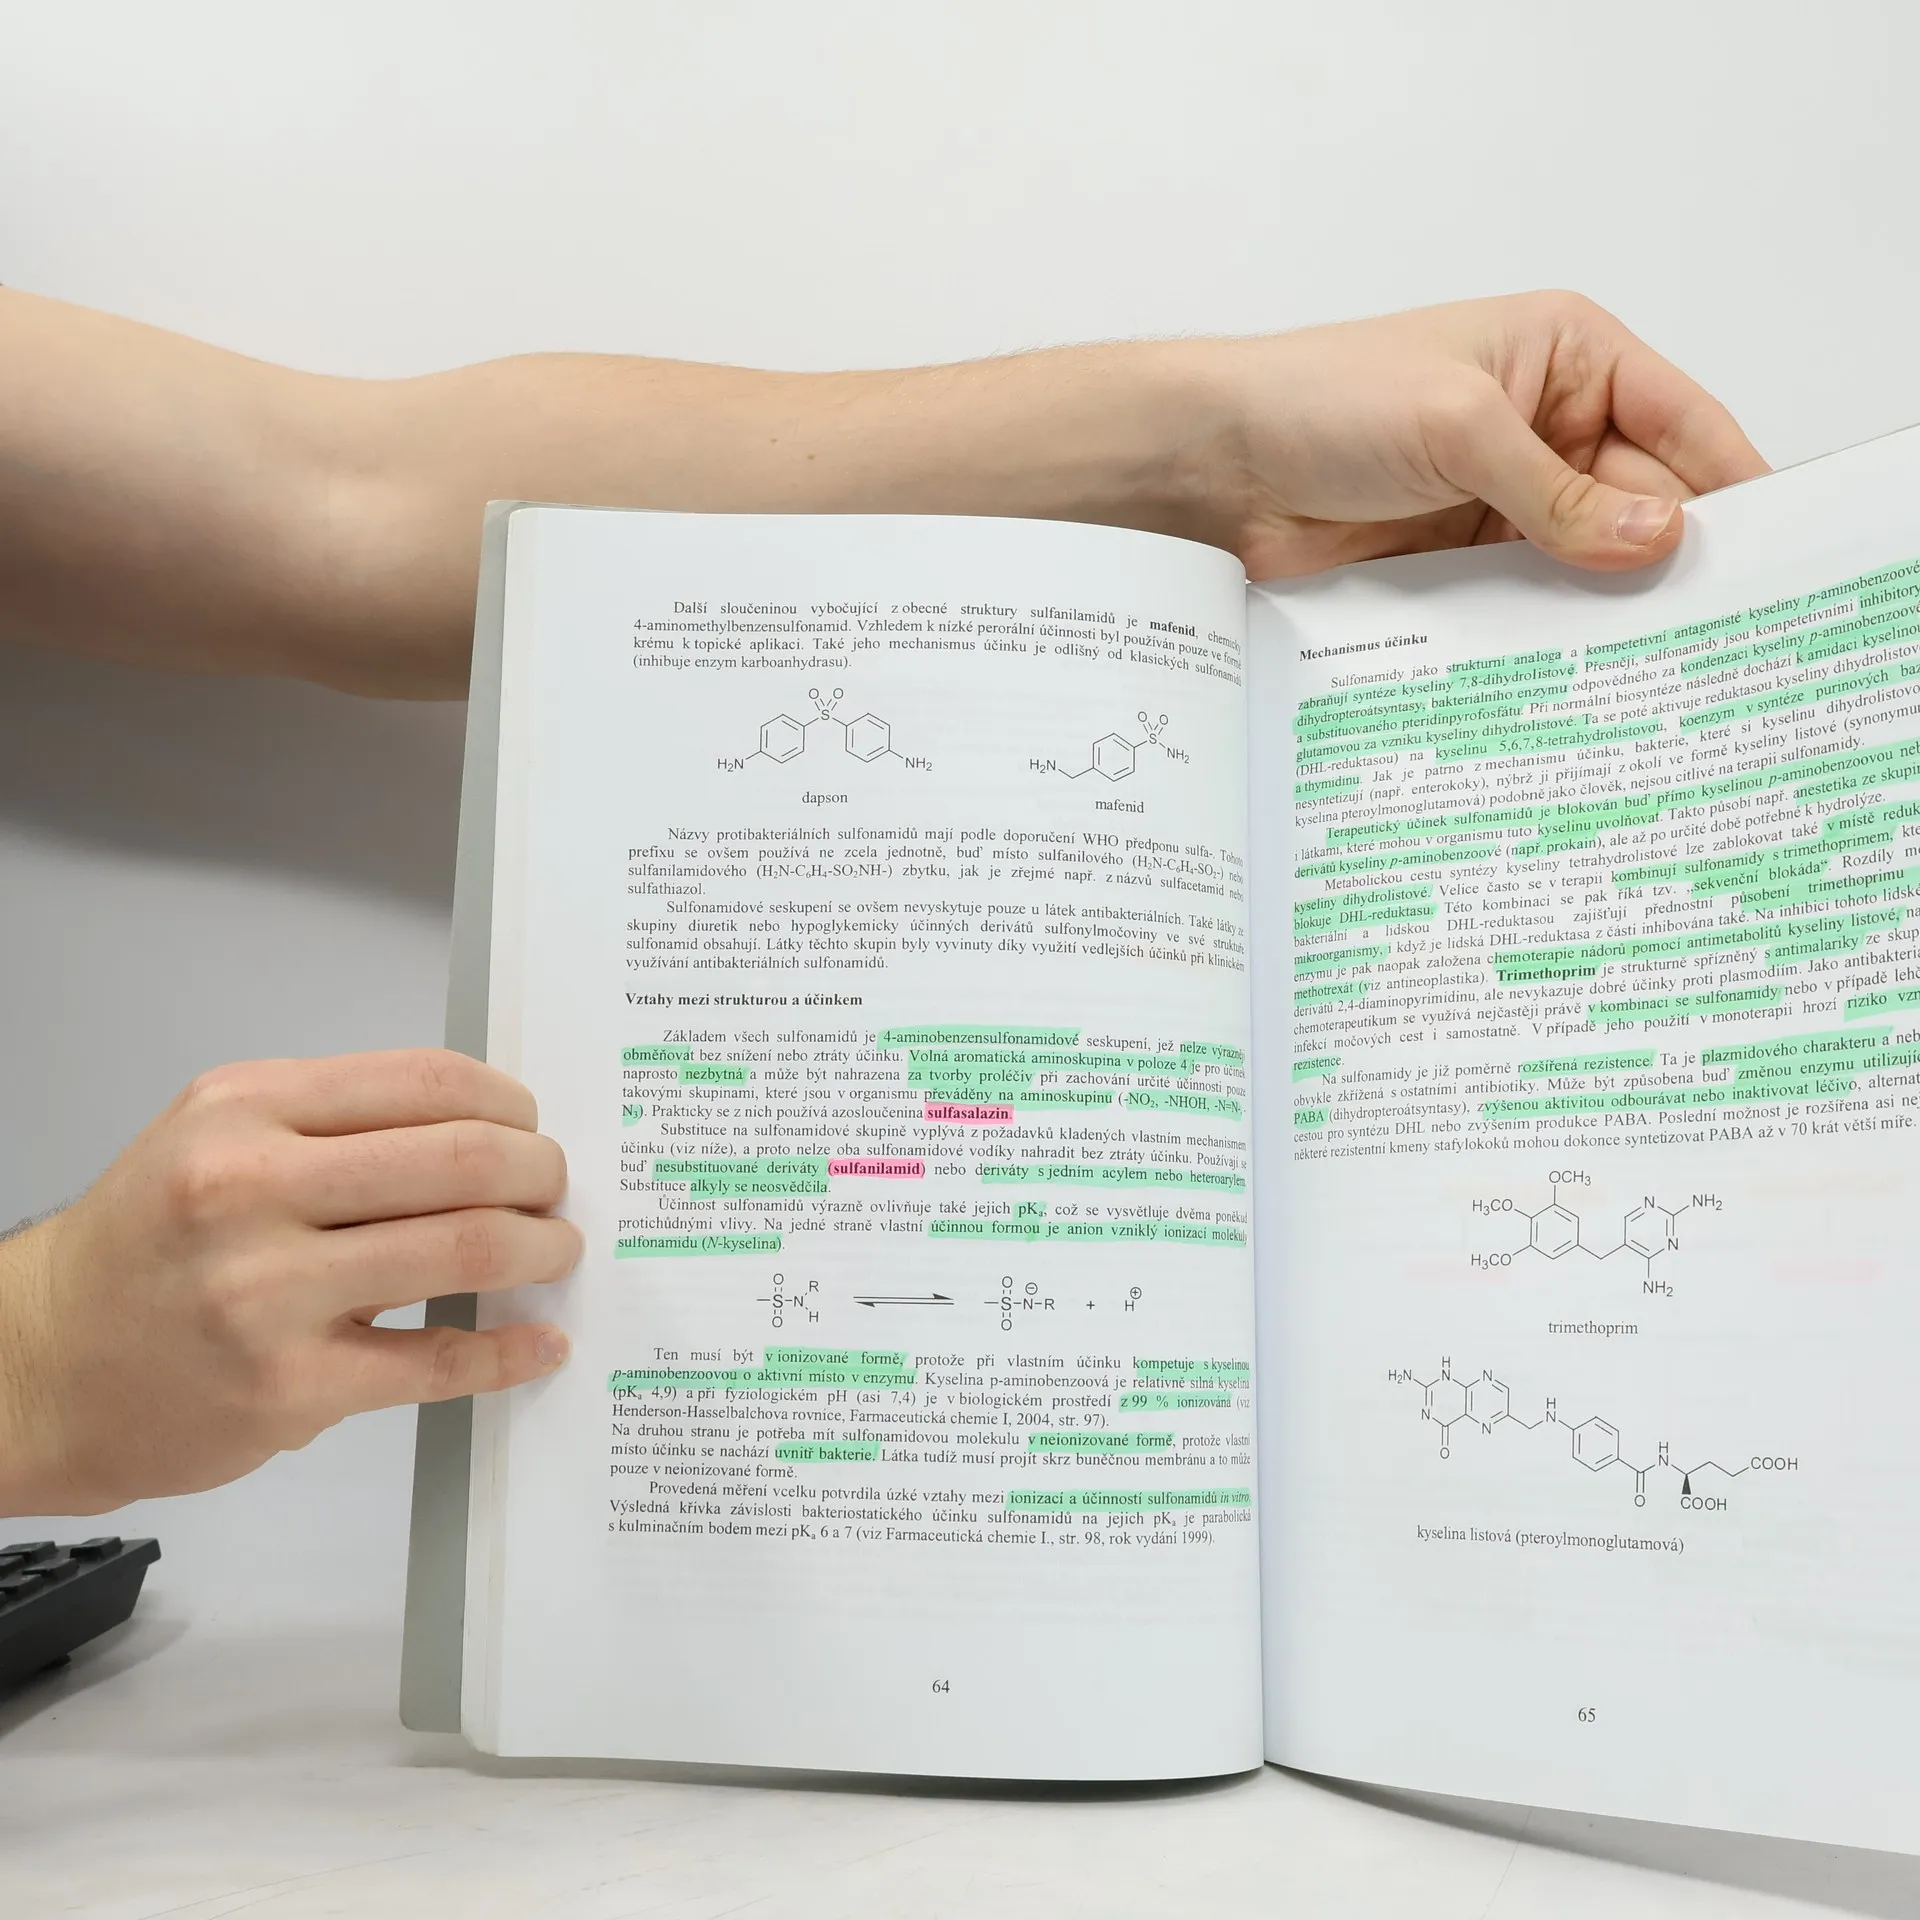 Další sloučeninou vybočující z obecné struktury sulfanilamidů je mafenid, chemicky
4-aminomethylbenzensulfonamid. Vzhledem k nízké perorální účinnosti byl používán pouze ve formě
krému k topické aplikaci. Také jeho mechanismus účinku je odlišný od klasických sulfonamidů
(inhibuje enzym karboanhydrasu).
O O
S
H₂N NH₂
dapson
O O
S
NH₂
H₂N
mafenid
Názvy protibakteriálních sulfonamidů mají podle doporučení WHO předponu sulfa-. Tohoto
prefixu se ovšem používá ne zcela jednotně, buď místo sulfanilového (H₂N-C₆H₄-SO₂-) nebo
sulfanilamidového (H₂N-C₆H₄-SO₂NH-) zbytku, jak je zřejmé např. z názvů sulfacetamid nebo
sulfathiazol.
Sulfonamidové seskupení se ovšem nevyskytuje pouze u látek antibakteriálních. Také látky ze
skupiny diuretik nebo hypoglykemicky účinných derivátů sulfonylmočoviny ve své struktuře
sulfonamid obsahují. Látky těchto skupin byly vyvinuty díky využití vedlejších účinků při klinickém
využívání antibakteriálních sulfonamidů.
Vztahy mezi strukturou a účinkem
Základem všech sulfonamidů je 4-aminobenzensulfonamidové seskupení, jež nelze výrazněji
obměňovat bez snížení nebo ztráty účinku. Volná aromatická aminoskupina v poloze 4 je pro účinek
naprosto nezbytná a může být nahrazena za tvorby proléčiv při zachování určité účinnosti pouze
takovými skupinami, které jsou v organismu převáděny na aminoskupinu (-NO₂, -NHOH, -N=N-, -
N₃). Prakticky se z nich používá azosloučenina sulfasalazin.
Substituce na sulfonamidové skupině vyplývá z požadavků kladených vlastním mechanismem
účinku (viz níže), a proto nelze oba sulfonamidové vodíky nahradit bez ztráty účinku. Používají se
buď nesubstituované deriváty (sulfanilamid) nebo deriváty s jedním acylem nebo heteroarylem.
Substituce alkyly se neosvědčila.
Účinnost sulfonamidů výrazně ovlivňuje také jejich pKₐ, což se vysvětluje dvěma poněkud
protichůdnými vlivy. Na jedné straně vlastní účinnou formou je anion vzniklý ionizací molekuly
sulfonamidu (N-kyselina).
O R
S-N
O H
O ⊖
S-N-R
O
+
⊕
H
Ten musí být v ionizované formě, protože při vlastním účinku kompetuje s kyselinou
p-aminobenzoovou o aktivní místo v enzymu. Kyselina p-aminobenzoová je relativně silná kyselina
(pKₐ 4,9) a při fyziologickém pH (asi 7,4) je v biologickém prostředí z 99 % ionizována (viz
Henderson-Hasselbalchova rovnice, Farmaceutická chemie I, 2004, str. 97).
Na druhou stranu je potřeba mít sulfonamidovou molekulu v neionizované formě, protože vlastní
místo účinku se nachází uvnitř bakterie. Látka tudíž musí projít skrz buněčnou membránu a to může
pouze v neionizované formě.
Provedená měření vcelku potvrdila úzké vztahy mezi ionizací a účinností sulfonamidů in vitro.
Výsledná křivka závislosti bakteriostatického účinku sulfonamidů na jejich pKₐ je parabolická
s kulminačním bodem mezi pKₐ 6 a 7 (viz Farmaceutická chemie I., str. 98, rok vydání 1999).
64
Mechanismus účinku
Sulfonamidy jako strukturní analoga a kompetetivní antagonisté kyseliny p-aminobenzoové
zabraňují syntéze kyseliny 7,8-dihydrolistové. Přesněji, sulfonamidy jsou kompetetivními inhibitory
dihydropteroátsyntasy, bakteriálního enzymu odpovědného za kondenzaci kyseliny p-aminobenzoové
a substituovaného pteridinpyrofosfátu. Při normální biosyntéze následně dochází k amidaci kyselinou
glutamovou za vzniku kyseliny dihydrolistové. Ta se poté aktivuje reduktasou kyseliny dihydrolistové
(DHL-reduktasou) na kyselinu 5,6,7,8-tetrahydrolistovou, koenzym v syntéze purinových bazí
a thymidinu. Jak je patrno z mechanismu účinku, bakterie, které si kyselinu dihydrolistovou
nesyntetizují (např. enterokoky), nýbrž ji přijímají z okolí ve formě kyseliny listové (synonymum
kyselina pteroylmonoglutamová) podobně jako člověk, nejsou citlivé na terapii sulfonamidy.
Terapeutický účinek sulfonamidů je blokován buď přímo kyselinou p-aminobenzoovou neb
i látkami, které mohou v organismu tuto kyselinu uvolňovat. Takto působí např. anestetika ze skupin
derivátů kyseliny p-aminobenzoové (např. prokain), ale až po určité době potřebné k hydrolýze.
Metabolickou cestu syntézy kyseliny tetrahydrolistové lze zablokovat také v místě reduk
kyseliny dihydrolistové. Velice často se v terapii kombinují sulfonamidy s trimethoprimem, kte
blokuje DHL-reduktasu. Této kombinaci se pak říká tzv. „sekvenční blokáda“. Rozdíly me
bakteriální a lidskou DHL-reduktasou zajišťují přednostní působení trimethoprimu
mikroorganismy, i když je lidská DHL-reduktasa z části inhibována také. Na inhibici tohoto lidské
enzymu je pak naopak založena chemoterapie nádorů pomocí antimetabolitů kyseliny listové, na
methotrexát (viz antineoplastika). Trimethoprim je strukturně spřízněný s antimalariky ze skup
derivátů 2,4-diaminopyrimidinu, ale nevykazuje dobré účinky proti plasmodiím. Jako antibakteria
chemoterapeutikum se využívá nejčastěji právě v kombinaci se sulfonamidy nebo v případě lehč
infekcí močových cest i samostatně. V případě jeho použití v monoterapii hrozí riziko vzn
rezistence.
Na sulfonamidy je již poměrně rozšířená rezistence. Ta je plazmidového charakteru a neb
obvykle zkřížená s ostatními antibiotiky. Může být způsobena buď změnou enzymu utilizujíc
PABA (dihydropteroátsyntasy), zvýšenou aktivitou odbourávat nebo inaktivovat léčivo, alternat
cestou pro syntézu DHL nebo zvýšením produkce PABA. Poslední možnost je rozšířena asi nej
některé rezistentní kmeny stafylokoků mohou dokonce syntetizovat PABA až v 70 krát větší míře.
OCH₃
H₃CO N NH₂
H₃CO N
NH₂
trimethoprim
H
H₂N N N
N N H
N
O
H
N COOH
O COOH
kyselina listová (pteroylmonoglutamová)
65